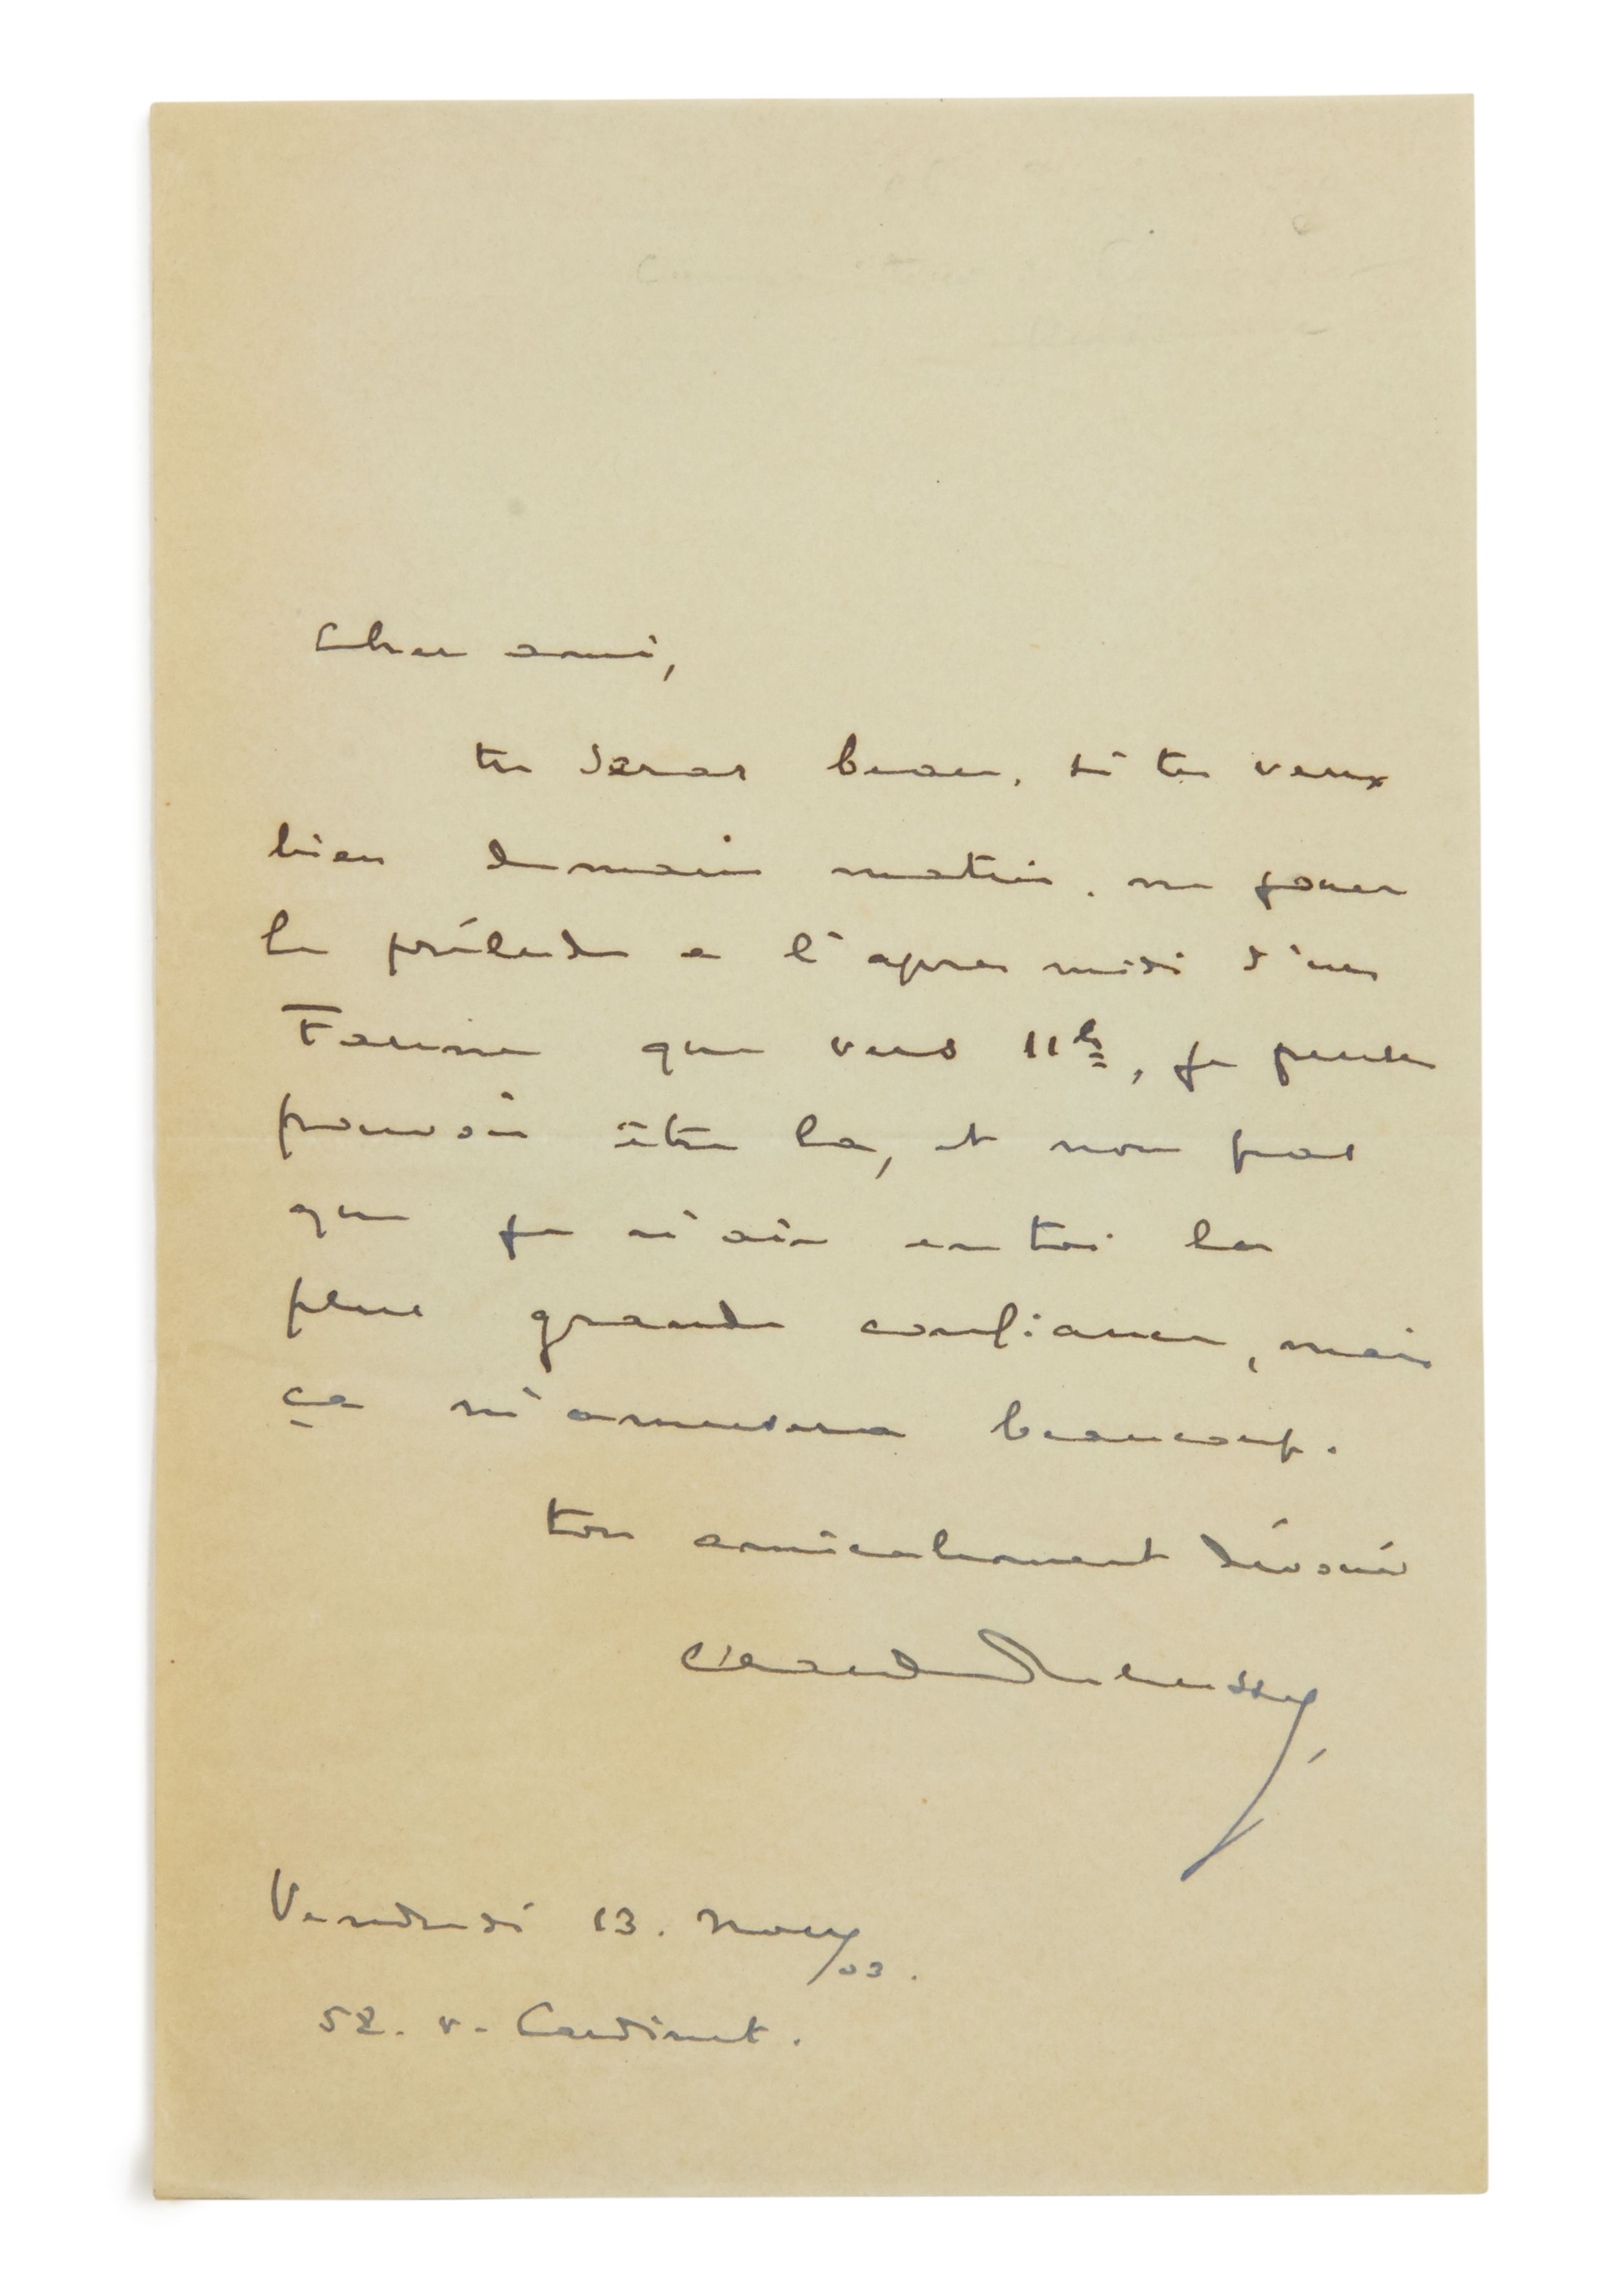 Cher ami,
tu seras beau, si tu veux
bien demain matin, ne jouer
le prélude a l'apres midi d'un
Faune que vers 11h, je pense
pouvoir être la, et non pas
que je n'aie en toi la
plus grande confiance, mais
ça m'amusera beaucoup.
ton amicalement dévoué
Claude Debussy
Vendredi 13. Nov/03.
58. r. Cardinet.